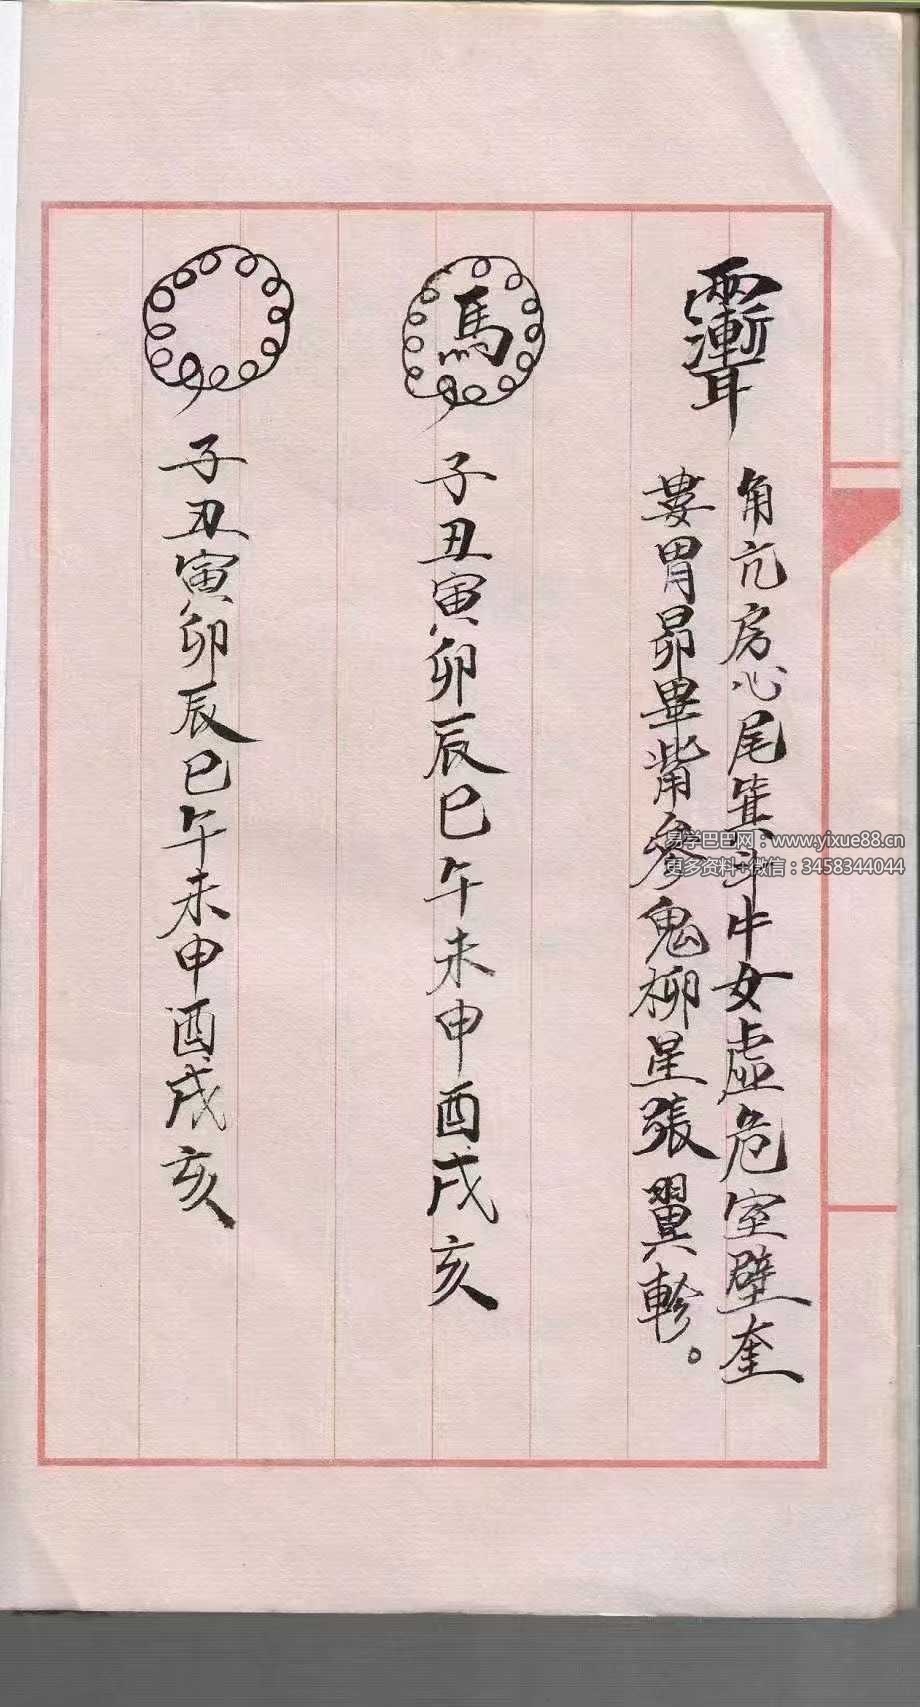 角亢房心尾箕斗牛女虛危室壁奎
婁胃昴畢觜參鬼柳星張翼軫。
馬
子丑寅卯辰巳午未申酉戌亥
子丑寅卯辰巳午未申酉戌亥
易学巴巴网：www.yixue88.cn
更多资料+微信：3458344044